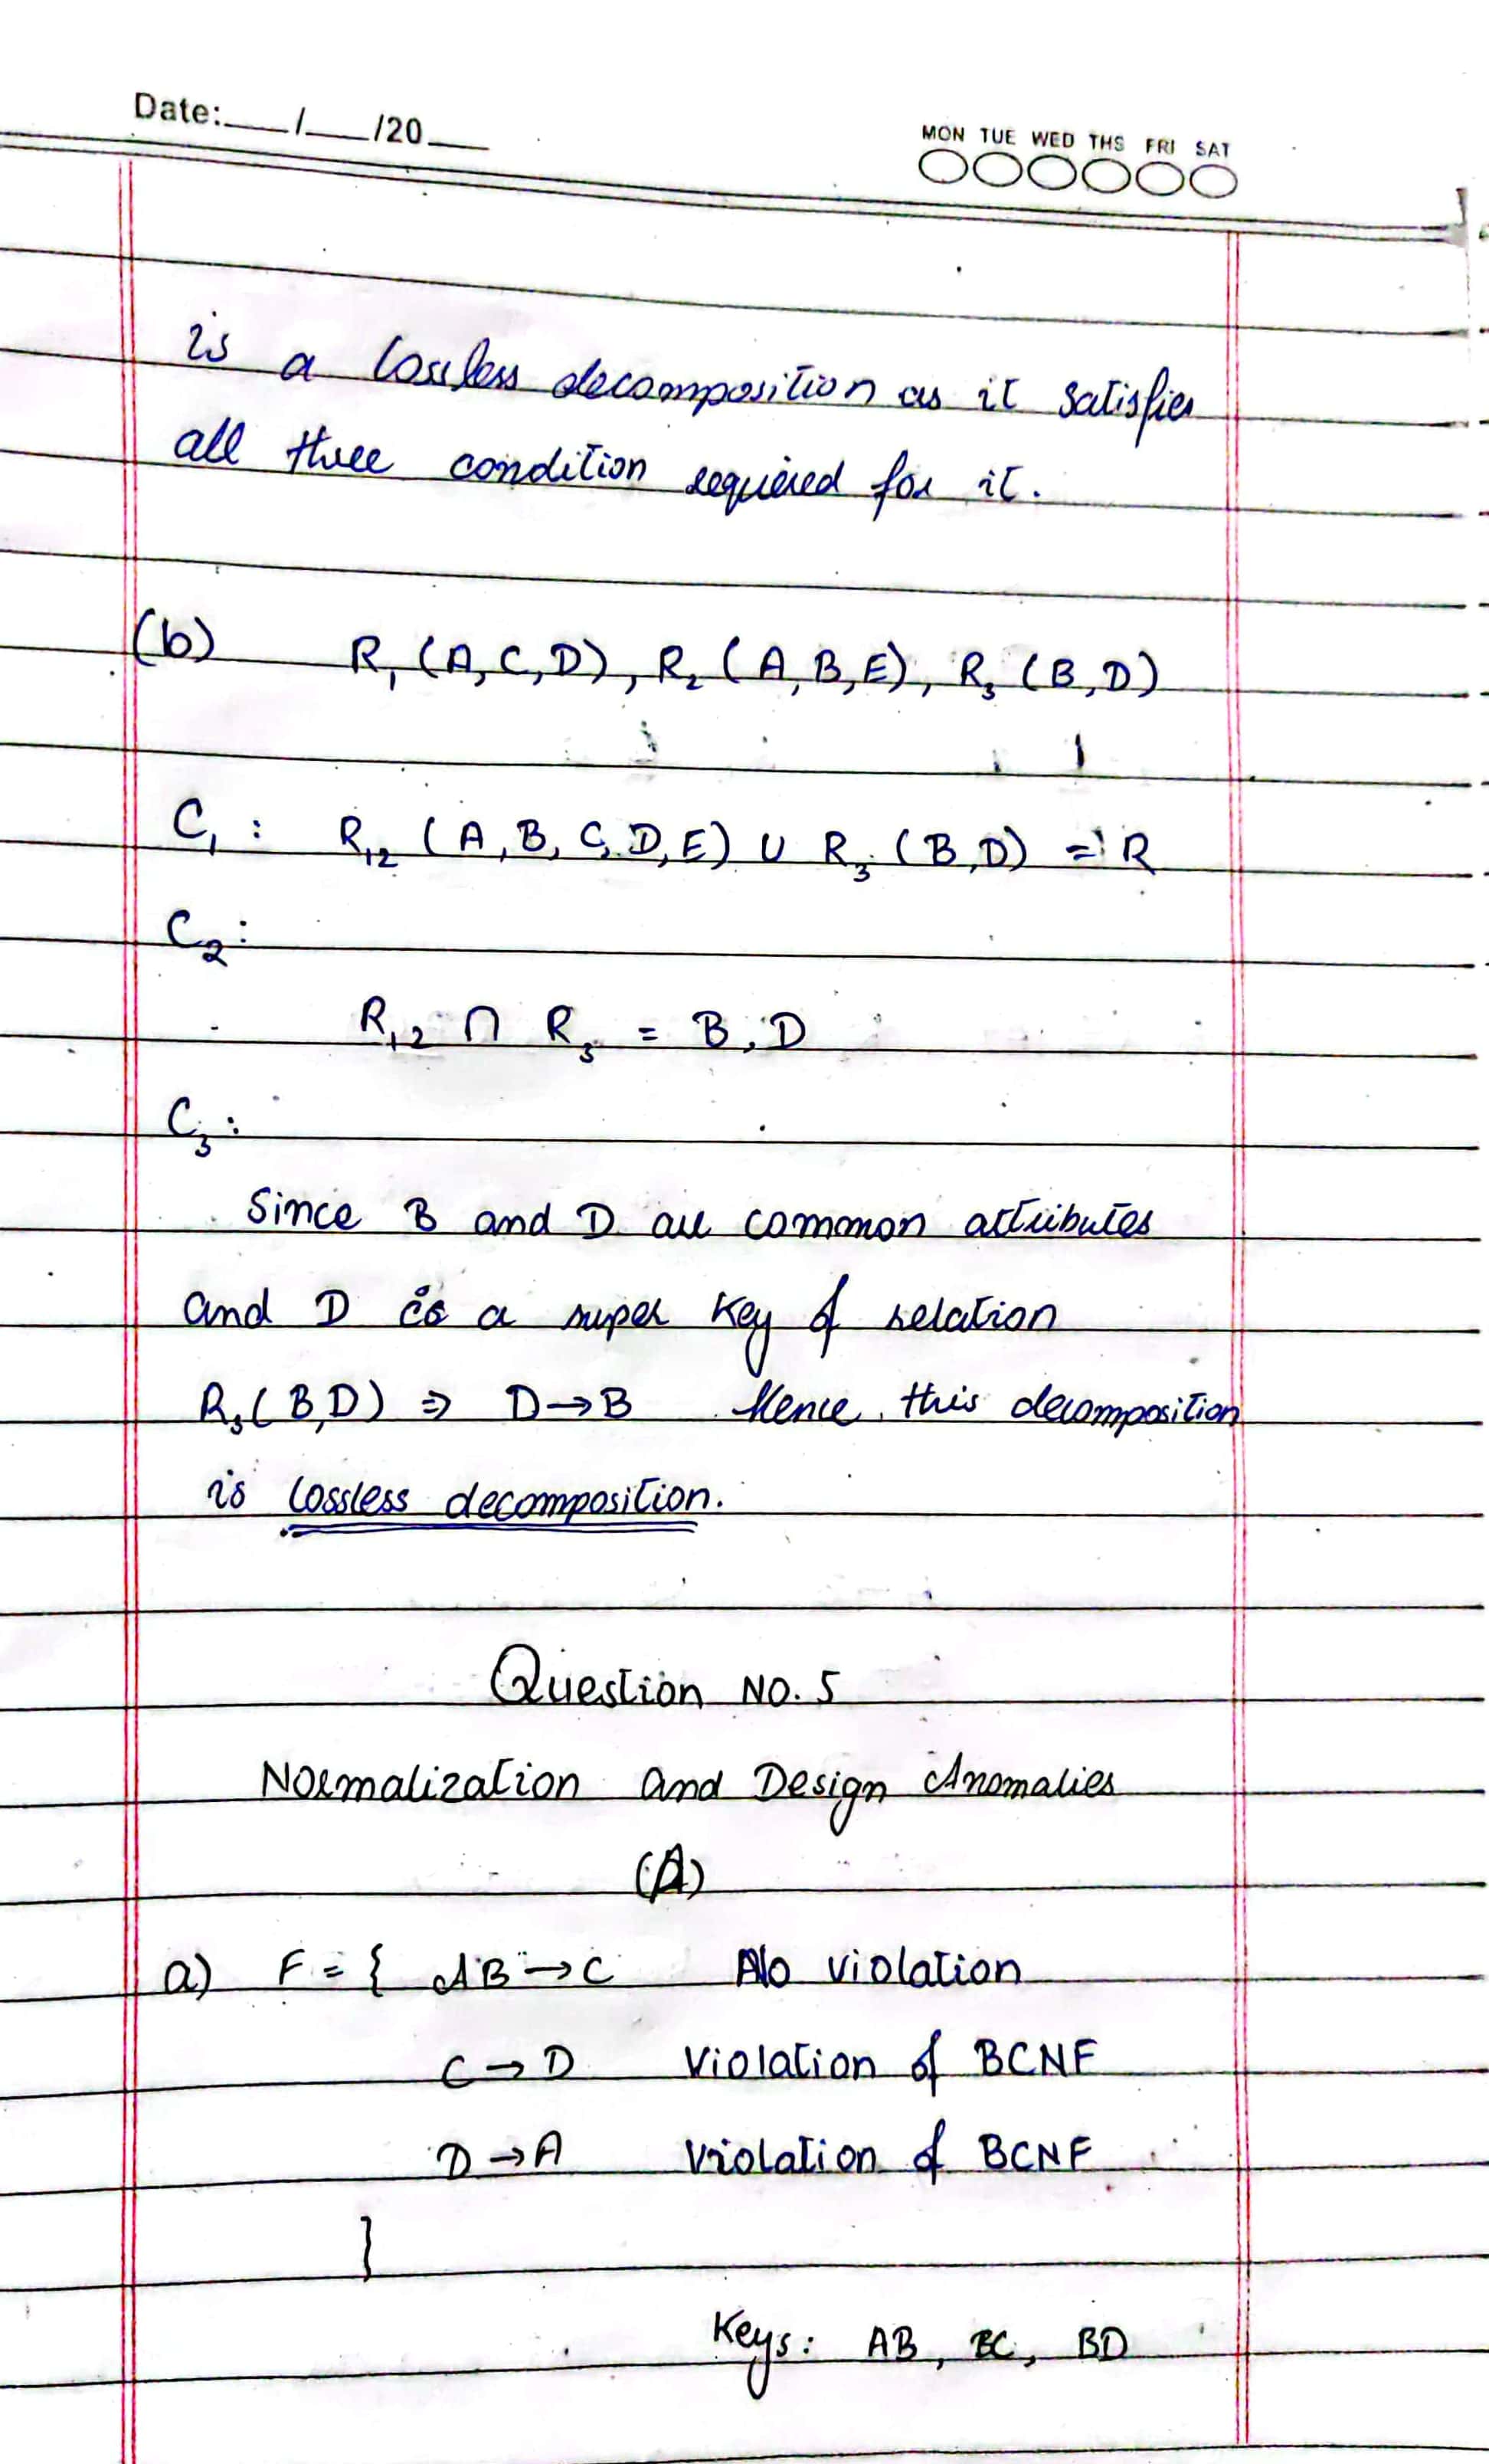 Date:___/___/20___
MON TUE WED THS FRI SAT
is a lossless decomposition as it satisfies
all three condition required for it.
(b) R₁ (A,C,D), R₂ (A,B,E), R₃ (B,D)
C₁ : R₁₂ (A,B,C,D,E) ∪ R₃ (B,D) = R
C₂ :
R₁₂ ∩ R₃ = B,D
C₃ :
Since B and D are common attributes
and D is a super key of relation
R₃(B,D) ⇒ D→B Hence this decomposition
is lossless decomposition.
Question NO. 5
Normalization and Design Anomalies
(A)
a) F = { AB → C No violation
C → D Violation of BCNF
D → A Violation of BCNF
}
Keys: AB, BC, BD